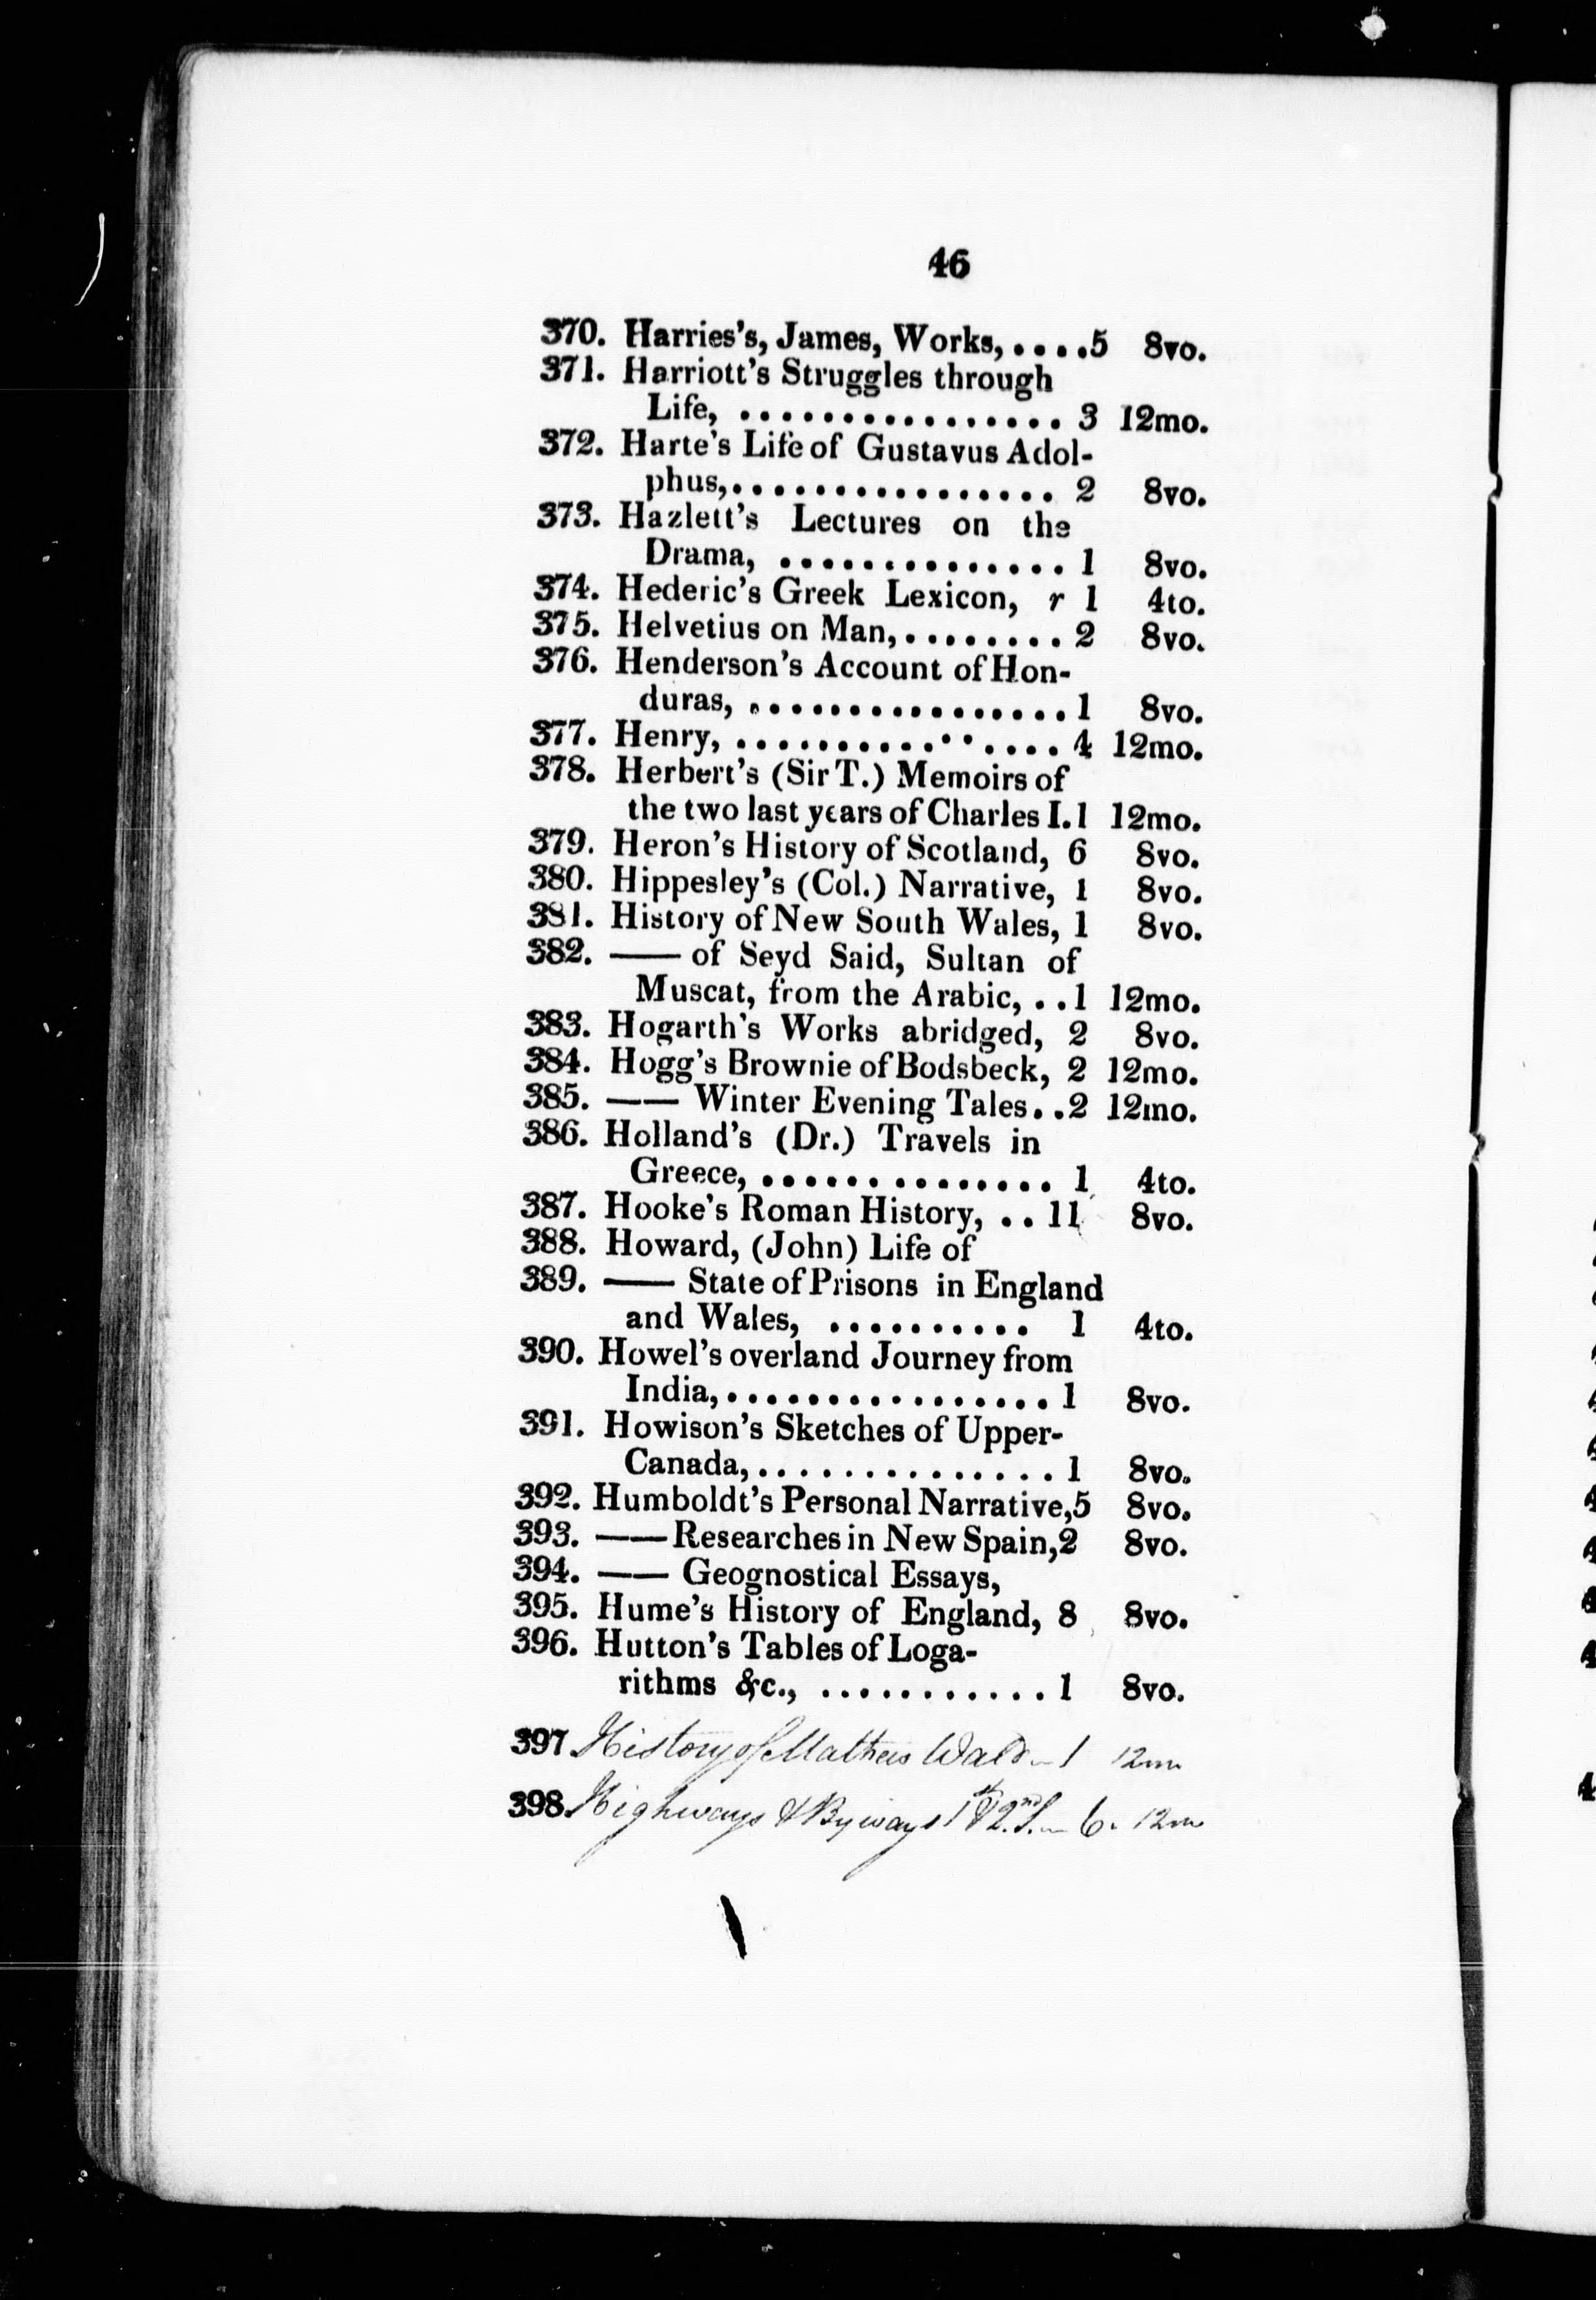 46
370. Harries's, James, Works, . . . .5 8vo.
371. Harriott's Struggles through
Life, . . . . . . . . . . . . . . . . 3 12mo.
372. Harte's Life of Gustavus Adol-
phus,. . . . . . . . . . . . . . . . 2 8vo.
373. Hazlett's Lectures on the
Drama, . . . . . . . . . . . . . . 1 8vo.
374. Hederic's Greek Lexicon, r 1 4to.
375. Helvetius on Man,. . . . . . . . 2 8vo.
376. Henderson's Account of Hon-
duras, . . . . . . . . . . . . . . . . 1 8vo.
377. Henry, . . . . . . . . . . . . . . . . 4 12mo.
378. Herbert's (Sir T.) Memoirs of
the two last years of Charles I. 1 12mo.
379. Heron's History of Scotland, 6 8vo.
380. Hippesley's (Col.) Narrative, 1 8vo.
381. History of New South Wales, 1 8vo.
382. —— of Seyd Said, Sultan of
Muscat, from the Arabic, . . 1 12mo.
383. Hogarth's Works abridged, 2 8vo.
384. Hogg's Brownie of Bodsbeck, 2 12mo.
385. —— Winter Evening Tales. . 2 12mo.
386. Holland's (Dr.) Travels in
Greece, . . . . . . . . . . . . . . 1 4to.
387. Hooke's Roman History, . . 11 8vo.
388. Howard, (John) Life of
389. —— State of Prisons in England
and Wales, . . . . . . . . . . 1 4to.
390. Howel's overland Journey from
India,. . . . . . . . . . . . . . . . 1 8vo.
391. Howison's Sketches of Upper-
Canada,. . . . . . . . . . . . . . . 1 8vo.
392. Humboldt's Personal Narrative,5 8vo.
393. —— Researches in New Spain,2 8vo.
394. —— Geognostical Essays,
395. Hume's History of England, 8 8vo.
396. Hutton's Tables of Loga-
rithms &c., . . . . . . . . . . . 1 8vo.
397 History of Wald - 1 12mo
398. Highways & Byways 1st & 2nd S. - 6. 12mo